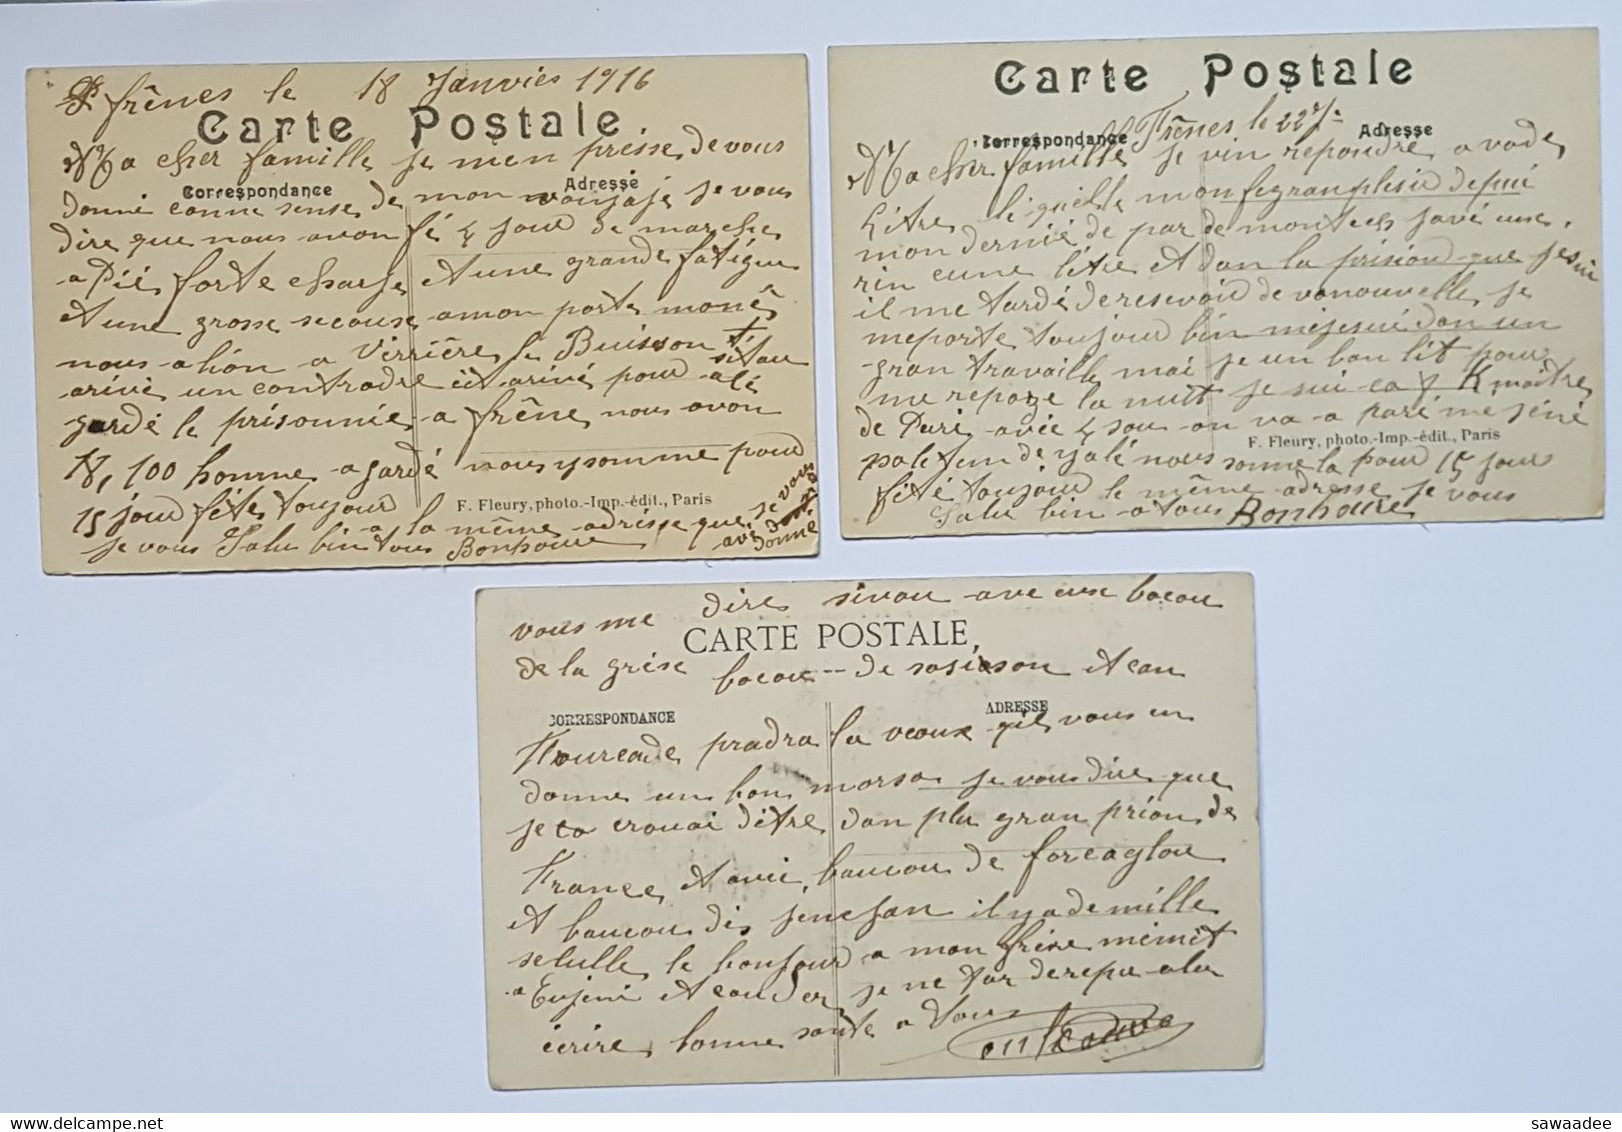 frênes le 18 Janvies 1916
Carte Postale
Ma cher famille je men presse de vous
Correspondance
Adresse
donné conne sense de mon vouyaje je vous
dire que nous avon fé 4 jour de marche
a Pié forte charje et une grande fatigue
et une grosse secouse a mon porte moné
nous alion a Verrière le Buisson
arivé un contrordre èt arivé pour alé
gardé le prisonnié a frêne nous avon
100 homme a gardé nous y somme pour
15 jour fête toujour
F. Fleury, photo.-Imp.-édit., Paris
a la même adresse que je vous
avé donné
je vous Salu bin tous Bonhoure
Carte Postale
Frênes le 22
Correspondance
Adresse
Ma cher famille je vin repondre a votre
Lètre mon fe gran plesir depui
mon dernié de par de montech javé
rin eu une lètre et dan la prision que je sui
il me tardé de resevoir de vo nouvelle je
me porte toujour bin me je sui dan un
gran travaille mai je un bon lit pour
me repoze la nuit je sui ca 7 K maître
de Pari avec 4 sou on va a pari me jéné
pa le tem de y alé nous somme la pour 15 jour
F. Fleury, photo.-Imp.-édit., Paris
fété toujour le même adresse je vous
Salu bin a tous Bonhoure
vous me dire sivou ave eux bocou
CARTE POSTALE
de la grèse bocou de sosisson et can
CORRESPONDANCE
ADRESSE
Fourcade pradra la veoux qil vous en
donne un bon morso je vous dire que
je crouai dètre dan plu gran prion de
France et avec baucou de
et baucou dis il y a de mille
selulle le bonjour a mon frère mèmèt
a Eujeni et je ne tar de repu a lu
écrire bonne sante a tous